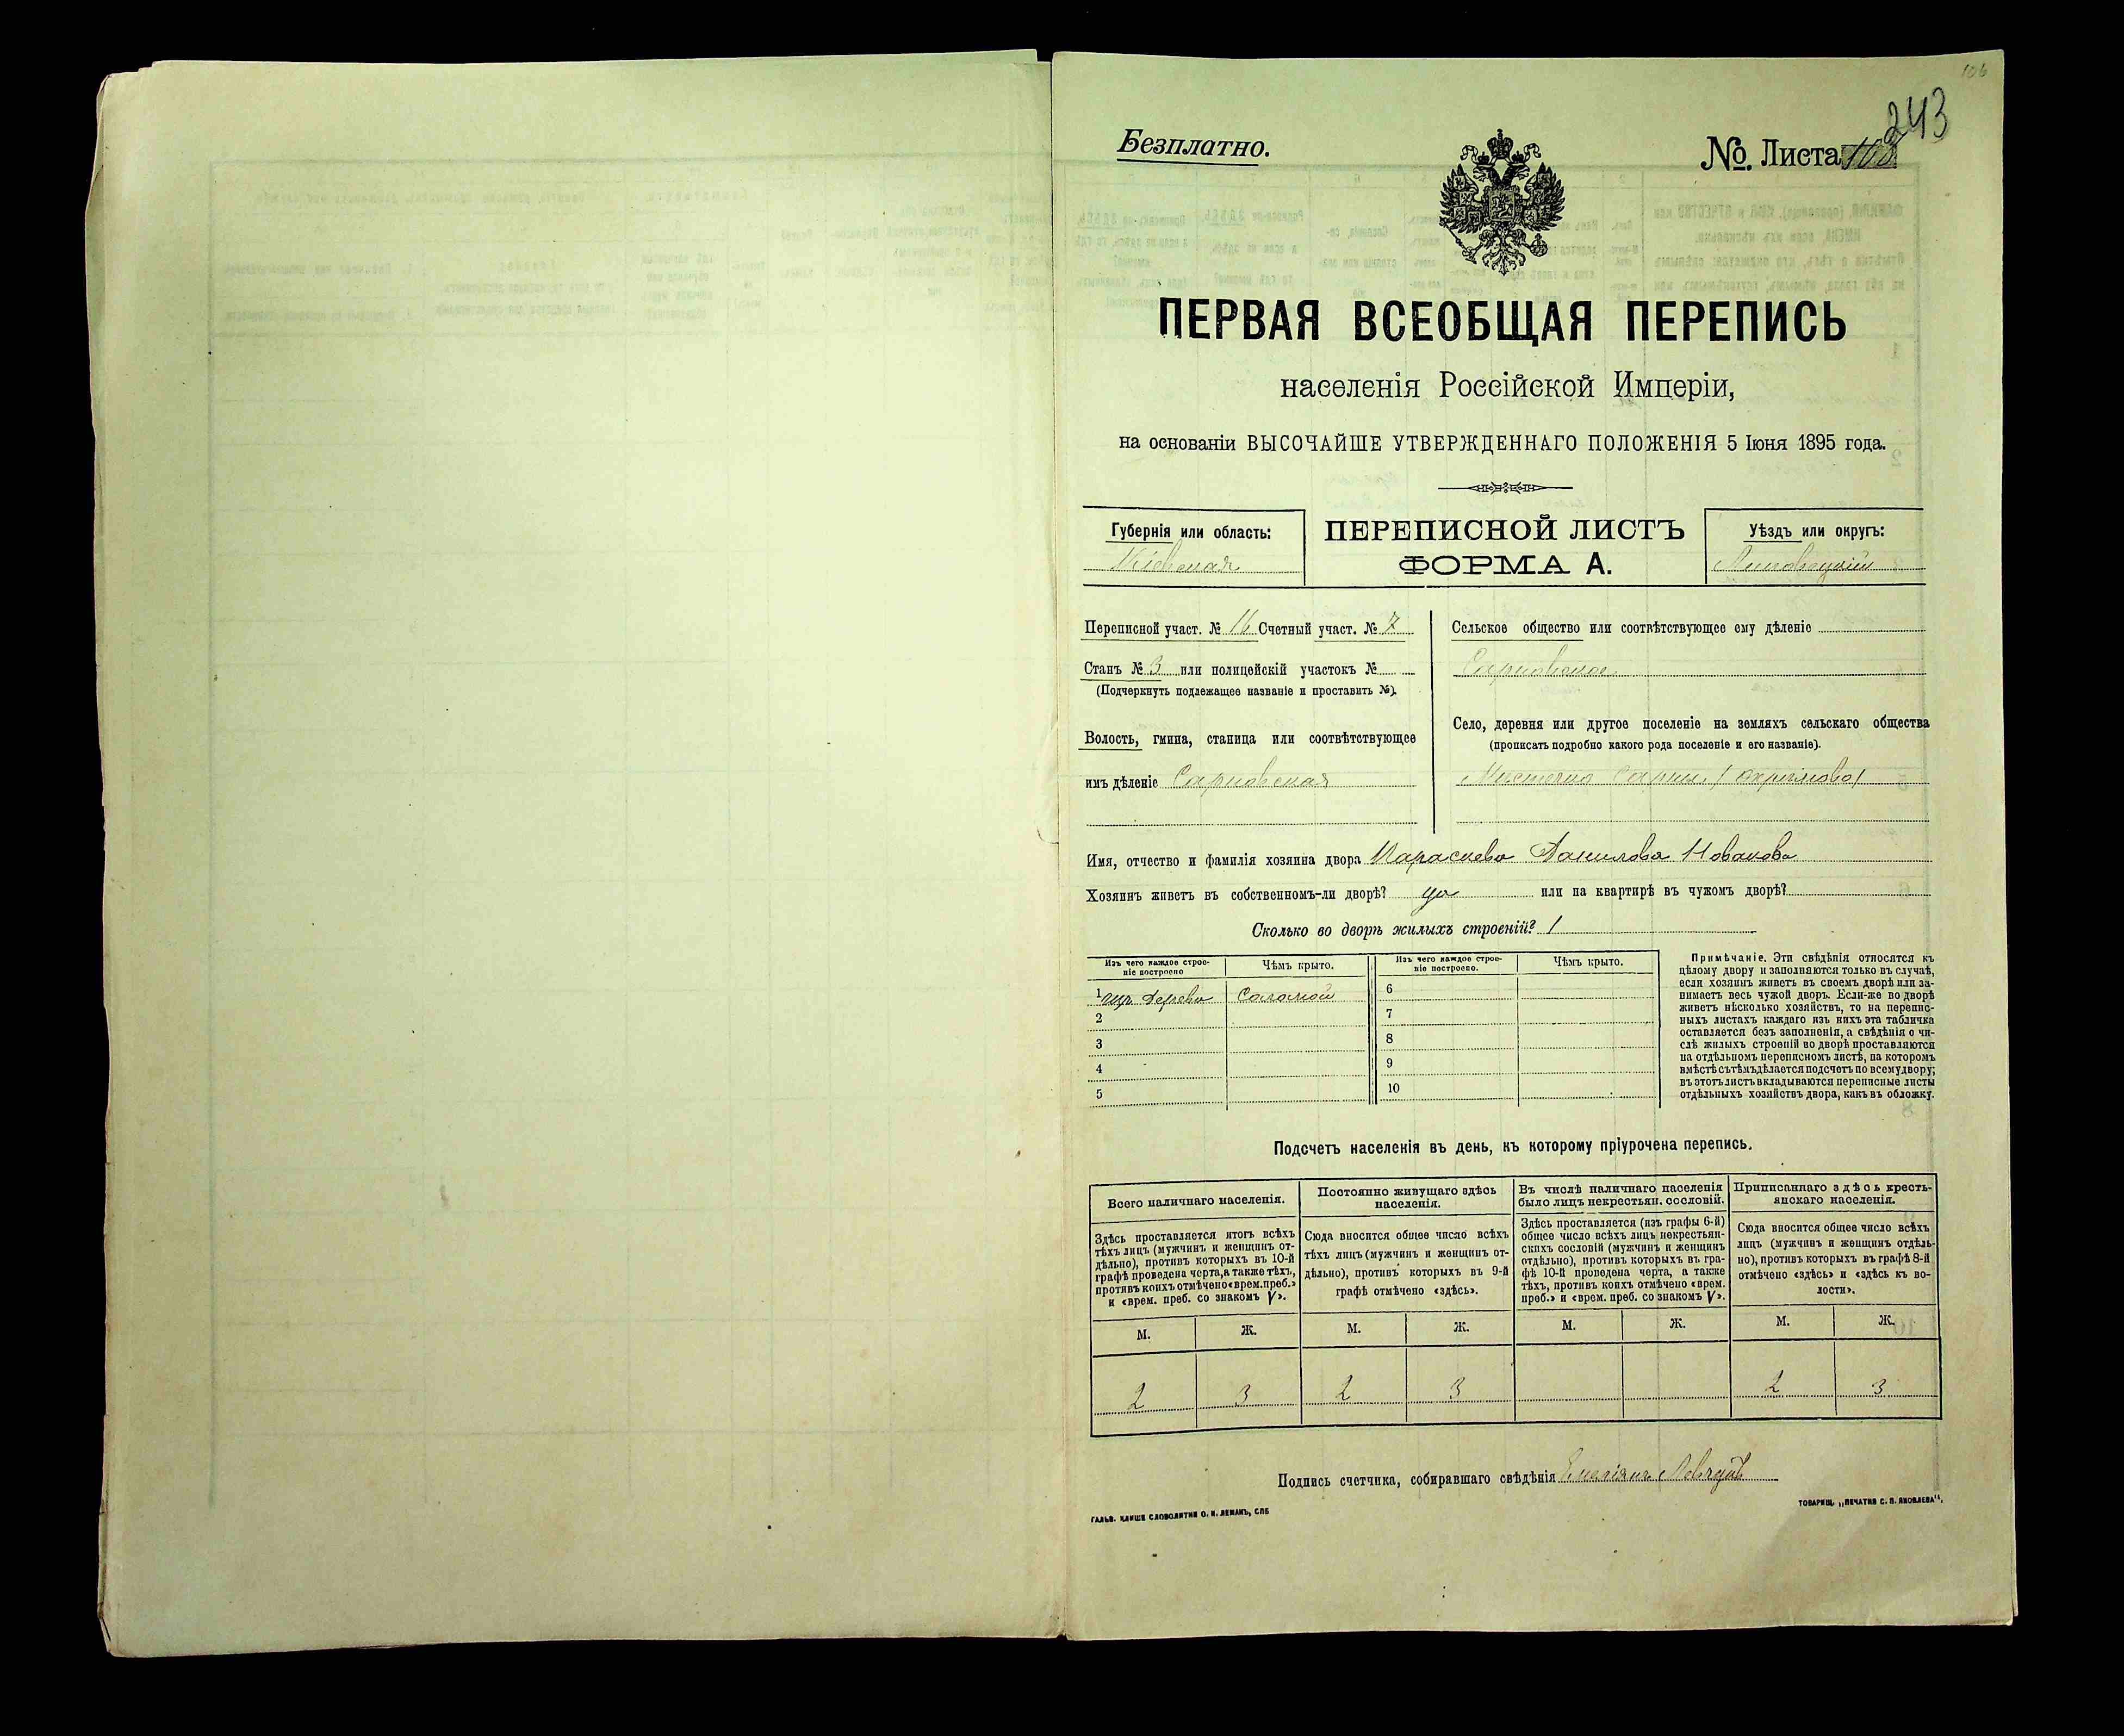 106
243
Безплатно.
№ Листа
ПЕРВАЯ ВСЕОБЩАЯ ПЕРЕПИСЬ
населенія Россійской Имперіи,
на основаніи ВЫСОЧАЙШЕ УТВЕРЖДЕННАГО ПОЛОЖЕНІЯ 5 Іюня 1895 года.
Губернія или область:
Кіевская
ПЕРЕПИСНОЙ ЛИСТЪ
ФОРМА А.
Уѣздъ или округъ:
Липовецкій
Переписной участ. № 16 Счетный участ. № 7
Станъ № 3 или полицейскій участокъ №
(Подчеркнуть подлежащее названіе и проставить №).
Волость, гмина, станица или соотвѣтствующее
имъ дѣленіе Сарновская
Сельское общество или соотвѣтствующее ему дѣленіе
Сарновское
Село, деревня или другое поселеніе на земляхъ сельскаго общества
(прописать подробно какого рода поселеніе и его названіе).
Мѣстечко Сарны
Имя, отчество и фамилія хозяина двора Параскева Данилова Новакова
Хозяинъ живетъ въ собственномъ-ли дворѣ? да или на квартирѣ въ чужомъ дворѣ?
Сколько во дворѣ жилыхъ строеній? 1
Изъ чего каждое строе-
ніе построено
Чѣмъ крыто.
Изъ чего каждое строе-
ніе построено.
Чѣмъ крыто.
1 изъ дерева Соломой
2
3
4
5
6
7
8
9
10
Примѣчаніе. Эти свѣдѣнія относятся къ
цѣлому двору и заполняются только въ случаѣ,
если хозяинъ живетъ въ своемъ дворѣ или за-
нимаетъ весь чужой дворъ. Если-же во дворѣ
живетъ нѣсколько хозяйствъ, то на перепис-
ныхъ листахъ каждаго изъ нихъ эта табличка
оставляется безъ заполненія, а свѣдѣнія о чи-
слѣ жилыхъ строеній во дворѣ проставляются
на отдѣльномъ переписномъ листѣ, на которомъ
вмѣстѣ съ тѣмъ дѣлается подсчетъ по всему двору;
въ этотъ листъ вкладываются переписные листы
отдѣльныхъ хозяйствъ двора, какъ въ обложку.
Подсчетъ населенія въ день, къ которому пріурочена перепись.
Всего наличнаго населенія.
Здѣсь проставляется итогъ всѣхъ
тѣхъ лицъ (мужчинъ и женщинъ от-
дѣльно), противъ которыхъ въ 10-й
графѣ проведена черта, а также тѣхъ,
противъ коихъ отмѣчено «врем. преб.»
и «врем. преб. со знакомъ V».
Постоянно живущаго здѣсь
населенія.
Сюда вносится общее число всѣхъ
тѣхъ лицъ (мужчинъ и женщинъ от-
дѣльно), противъ которыхъ въ 9-й
графѣ отмѣчено «здѣсь».
Въ числѣ наличнаго населенія
было лицъ некрестьян. сословій.
Здѣсь проставляется (изъ графы 6-й)
общее число всѣхъ лицъ некрестьян-
скихъ сословій (мужчинъ и женщинъ
отдѣльно), противъ которыхъ въ гра-
фѣ 10-й проведена черта, а также
тѣхъ, противъ коихъ отмѣчено «врем.
преб.» и «врем. преб. со знакомъ V».
Приписаннаго здѣсь кресть-
янскаго населенія.
Сюда вносится общее число всѣхъ
лицъ (мужчинъ и женщинъ отдѣль-
но), противъ которыхъ въ графѣ 8-й
отмѣчено «здѣсь» и «здѣсь къ во-
лости».
М. Ж. М. Ж. М. Ж. М. Ж.
2 3 2 3 2 3
Подпись счетчика, собиравшаго свѣдѣнія
ГАЛЬВ. КЛИШЕ СЛОВОЛИТНИ О. И. ЛЕМАНЪ, СПБ
ТОВАРИЩ. „ПЕЧАТНЯ С. П. ЯКОВЛЕВА“.